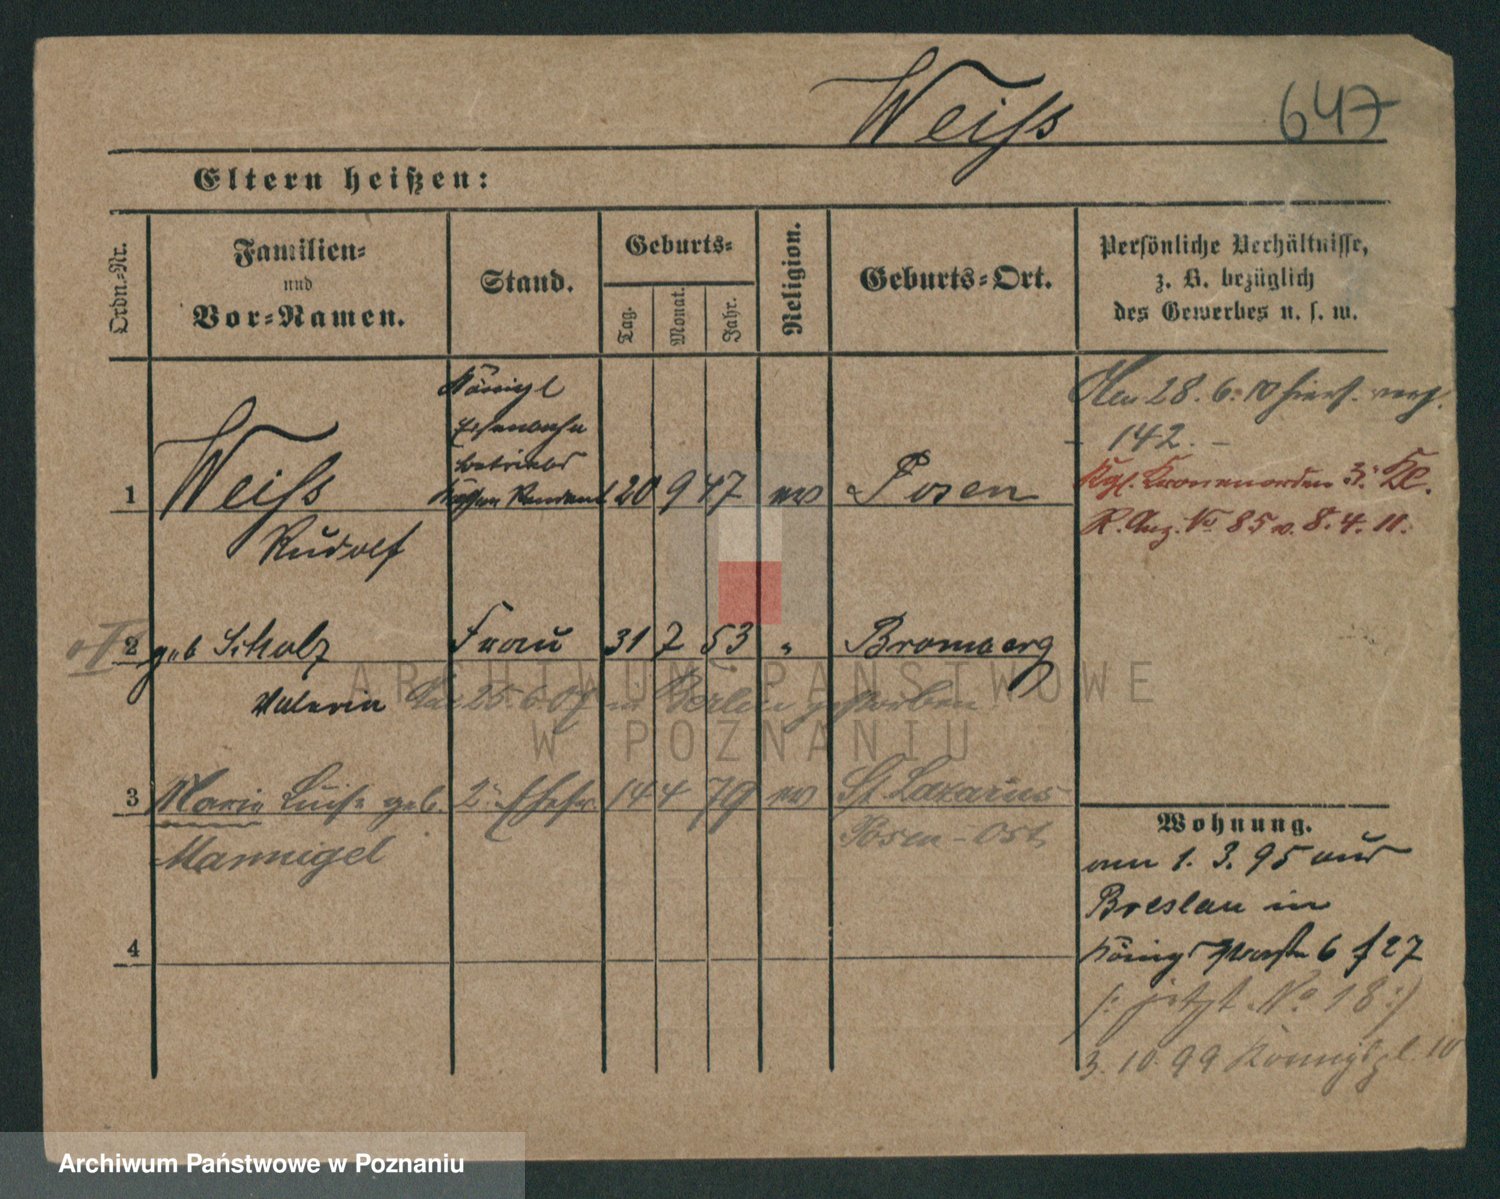 Weiss
647
Eltern heißen:
Ordn.-Nr.
Familien-
und
Vor-Namen.
Stand.
Geburts-
Tag.
Monat.
Jahr.
Religion.
Geburts-Ort.
Persönliche Verhältnisse,
z. B. bezüglich
des Gewerbes u. s. w.
1 Weiss
Rudolf
Königl
Eisenbahn
betriebs
Kassen Rendant
20 9 47 ev Posen
28.6.10
142.
Kgl. Kronenorden 3. Kl.
R. Anz. No 85 v. 8. 4. 11.
2 geb Scholz Frau 31 7 53 " Bromberg
Valerie 25.6.07 in Berlin gestorben
ARCHIWUM PAŃSTWOWE
W POZNANIU
3 Marie Luise geb. 2. Ehefr. 14 4 79 ev St. Lazarus
Mannigel
Posen-Ost
4
Wohnung.
am 1. 3. 95 aus
Breslau in
Königsstraße 6 f 27
/: jetzt No 18 :/
3. 10. 99 Königspl. 10
Archiwum Państwowe w Poznaniu